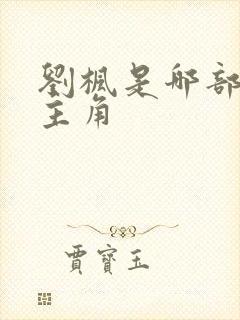 劉楓是那部
主角
賈寶玉